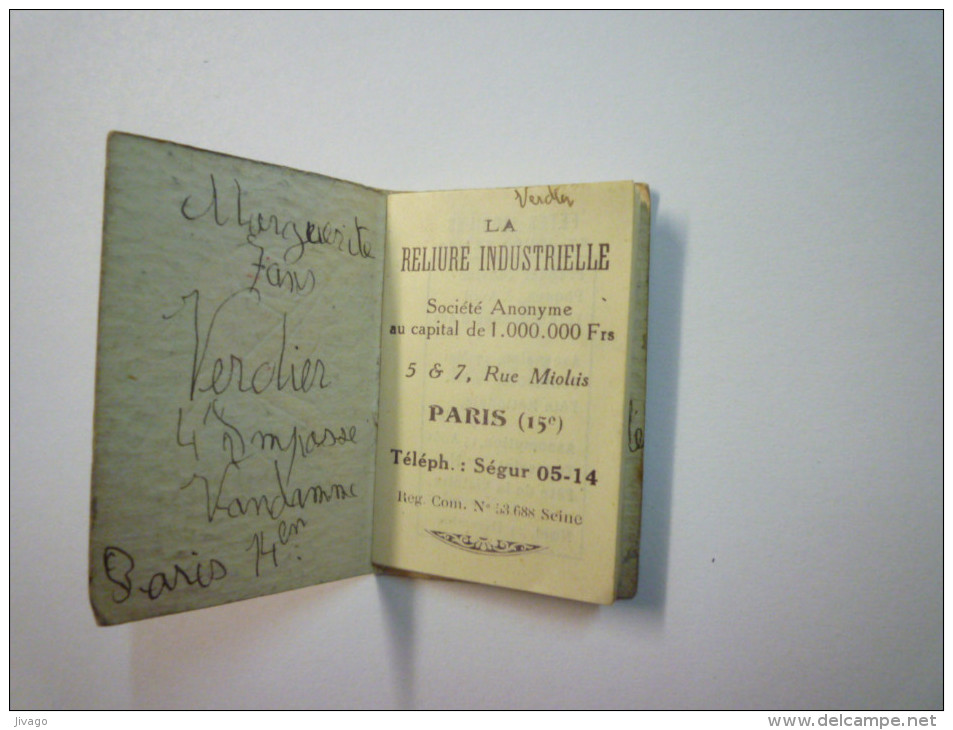 Marguerite
Verdier
4 Impasse
Vandamme
Paris 14en
Verdier
LA
RELIURE INDUSTRIELLE
Société Anonyme
au capital de 1.000.000 Frs
5 & 7, Rue Miollis
PARIS (15e)
Téléph. : Ségur 05-14
Reg. Com. No 53.688 Seine
Jivago
www.delcampe.net